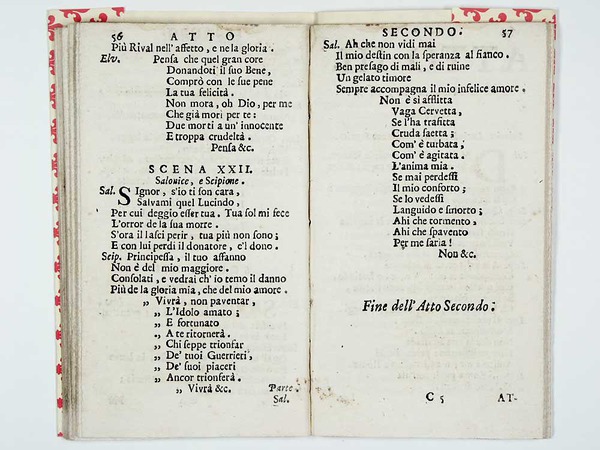 56 ATTO
Più Rival nell' affetto, e ne la gloria.
Elv. Pensa che quel gran core
Donandoti il suo Bene,
Comprò con le sue pene
La tua felicità.
Non mora, oh Dio, per me
Che già morì per te:
Due morti a un' innocente
E troppa crudeltà.
Pensa &c.
SCENA XXII.
Salonice, e Scipione.
Sal. SIgnor, s'io ti son cara,
Salvami quel Lucindo,
Per cui deggio esser tua. Tua sol mi fece
L'orror de la sua morte.
S'ora il lasci perir, tua più non sono;
E con lui perdi il donatore, e'l dono.
Scip. Principessa, il tuo affanno
Non è del mio maggiore.
Consolati, e vedrai ch' io temo il danno
Più de la gloria mia, che del mio amore.
„ Vivrà, non paventar,
„ L'Idolo amato;
„ E fortunato
„ A te ritornerà.
„ Chi seppe trionfar
„ De' tuoi Guerrieri,
„ De' suoi piaceri
„ Ancor trionferà.
„ Vivrà &c. Parte.
Sal.
SECONDO. 57
Sal. Ah che non vidi mai
Il mio destin con la speranza al fianco.
Ben presago di mali, e di ruine
Un gelato timore
Sempre accompagna il mio infelice amore.
Non è sì afflitta
Vaga Cervetta,
Se l'ha trafitta
Cruda saetta;
Com' è turbata,
Com' è agitata.
L'anima mia.
Se mai perdessi
Il mio conforto;
Se lo vedessi
Languido e smorto;
Ahi che tormento,
Ahi che spavento
Per me saria!
Non &c.
Fine dell' Atto Secondo.
C 5 AT-